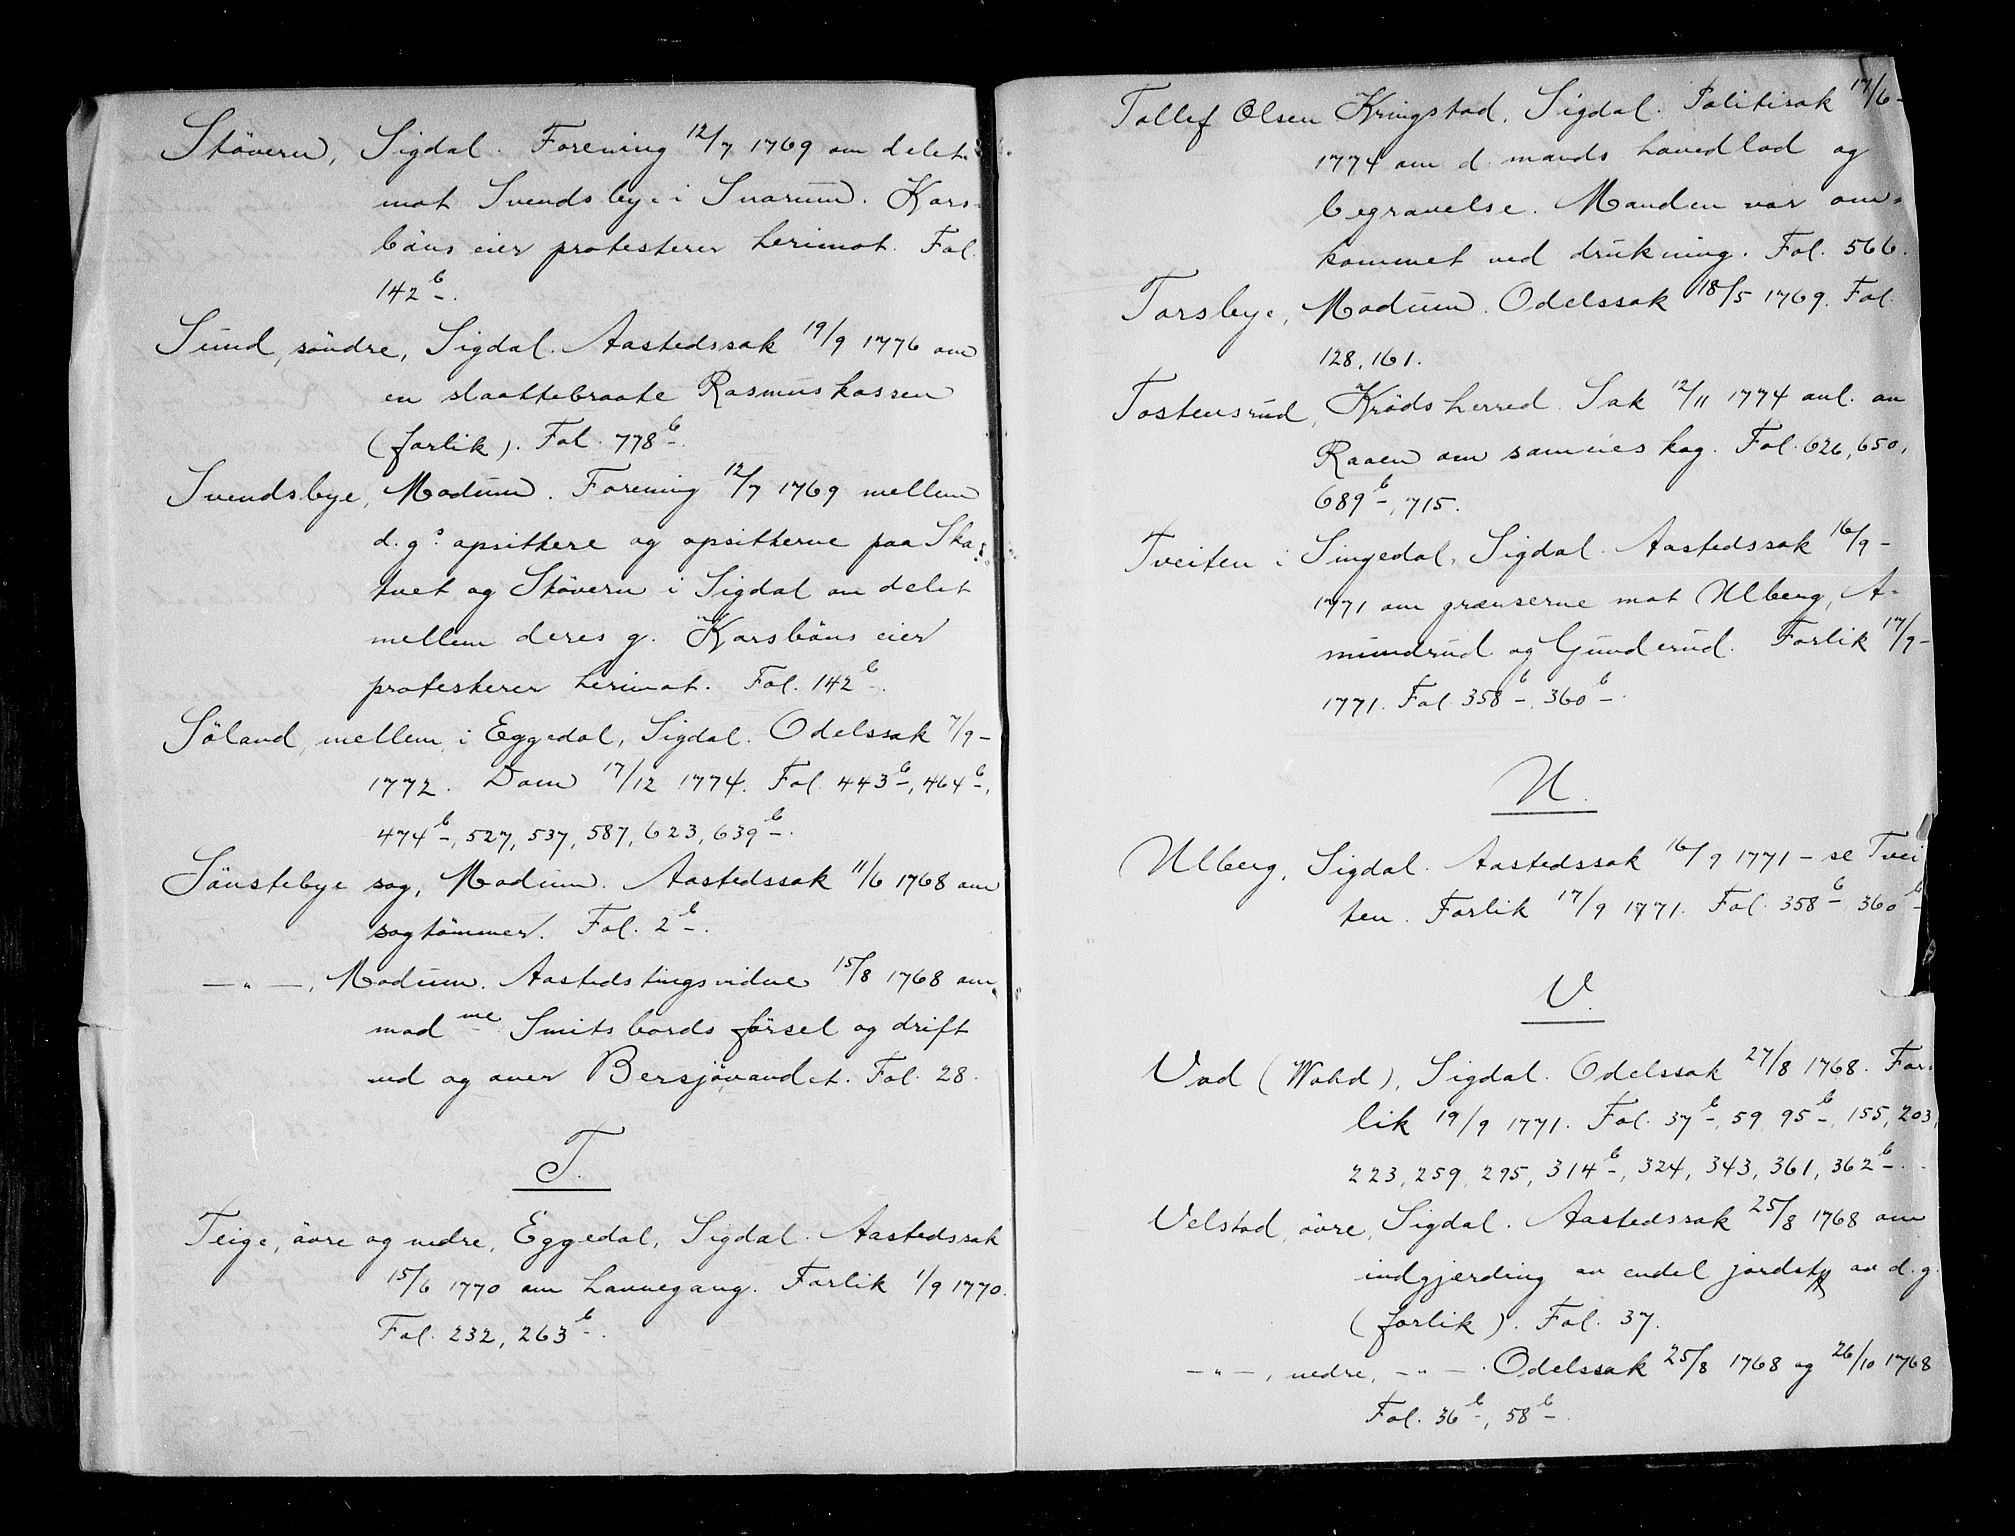 Stövern, Sigdal. Forening 12/7 1769 om delet
mot Svendsbye i Snarum. Kors-
böns eier protesterer herimot. Fol.
142 b.
Sund, söndre, Sigdal. Aastedssak 19/9 1776 om
en slaattebraate Rasmuskassen
(forlik). Fol. 778 b.
Svendsbye, Modum. Forening 12/7 1769 mellem
d. g.s opsittere og opsitterne paa Ska-
tvet og Stövern i Sigdal om delet
mellem deres g. Korsböns eier
protesterer herimot. Fol. 142 b.
Söland, mellem, i Eggedal, Sigdal. Odelssak 7/9-
1772. Dom 17/12 1774. Fol. 443 b, 464 b,
474 b, 527, 537, 587, 623, 639 b.
Sönstebye sag, Modum. Aastedssak 11/6 1768 om
sagtömmer. Fol. 2 b.
— " —, Modum. Aastedstingsvidne 15/8 1768 om
mad me Smits bords försel og drift
ved og over Bersjövandet. Fol. 28.
T.
Teige, övre og nedre, Eggedal, Sigdal. Aastedssak
15/6 1770 om havnegang. Forlik 1/9 1770.
Fol. 232, 263 b.
Tollef Olsen Kringstad, Sigdal. Politisak 17/6-
1774 om d. mands hovedlod og
begravelse. Manden var om-
kommet ved drukning. Fol. 566.
Torsbye, Modum. Odelssak 18/5 1769. Fol.
128, 161.
Tostensrud, Krödsherred. Sak 12/11 1774 anl. av
Raaen om sameieskog. Fol. 626, 650,
689 b, 715.
Tveiten i Singedal, Sigdal. Aastedssak 16/9-
1771 om grænserne mot Ulberg, A-
mundrud og Gunderud. Forlik 17/9-
1771. Fol. 358 b, 360 b.
U.
Ulberg, Sigdal. Aastedssak 16/9 1771 - se Tvei
ten. Forlik 17/9 1771. Fol. 358 b, 360 b
V.
Vad (Wahd), Sigdal. Odelssak 27/8 1768. For-
lik 19/9 1771. Fol. 37 b, 59, 95 b, 155, 203,
223, 259, 295, 314 b, 324, 343, 361, 362 b.
Velstad, övre, Sigdal. Aastedssak 25/8 1768 om
indgjerding av endel jordst. av d. g.
(forlik). Fol. 37.
— " —, nedre, — " —. Odelssak 25/8 1768 og 26/10 1768
Fol. 36 b, 58 b.